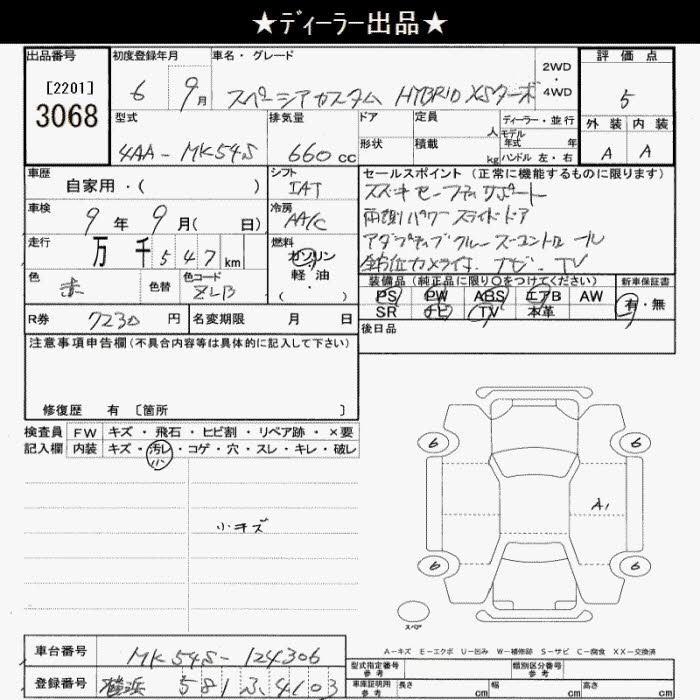 ★ディーラー出品★
出品番号
[2201]
3068
初度登録年月
6 9月
車名・グレード
スペーシアカスタム HYBRID XSターボ
2WD
・
4WD
評価点
5
外装 内装
A A
型式
4AA-MK54S
排気量
660cc
ドア
形状
定員 人
積載 kg
ディーラー・並行
モデル
年式 年
ハンドル 左・右
車歴
自家用・( )
シフト
IAT
車検
9年 9月( 日)
冷房
AA/C
走行
万 千 547 km
燃料
ガソリン
軽・油
・
( )
色
赤
色替
色コード
ZLB
セールスポイント (正常に機能するものに限ります)
スズキセーフティサポート
両側パワースライドドア
アダプティブクルーズコントロール
全方位カメラ付ナビ・TV
装備品(純正品に限り○をつけてください)
PS PW ABS エアB AW
SR ナビ TV 本革
新車保証書
有・無
R券 7230円
名変期限 月 日
後日品
注意事項申告欄(不具合内容等は具体的に記入して下さい)
修復歴 有 〔箇所 〕
検査員 FW キズ・飛石・ヒビ割・リペア跡・×要
記入欄 内装 キズ・汚レ・コゲ・穴・スレ・キレ・破レ
小
小キズ
6 6
A1
6 6
スペア
A-キズ E-エクボ U-凹み W-補修跡 S-サビ C-腐食 XX-交換済
車台番号 MK54S-124306
登録番号 横浜 581 ふ 4103
型式指定番号
参考
類別区分番号
参考
車庫証明用
参考
長さ cm 幅 cm 高さ cm